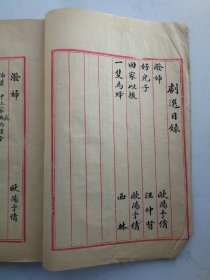 劇選目錄
潑婦 歐陽予倩
好兒子 汪仲賢
回家以後 歐陽予倩
一隻馬蜂 西林
潑婦
歐陽予倩